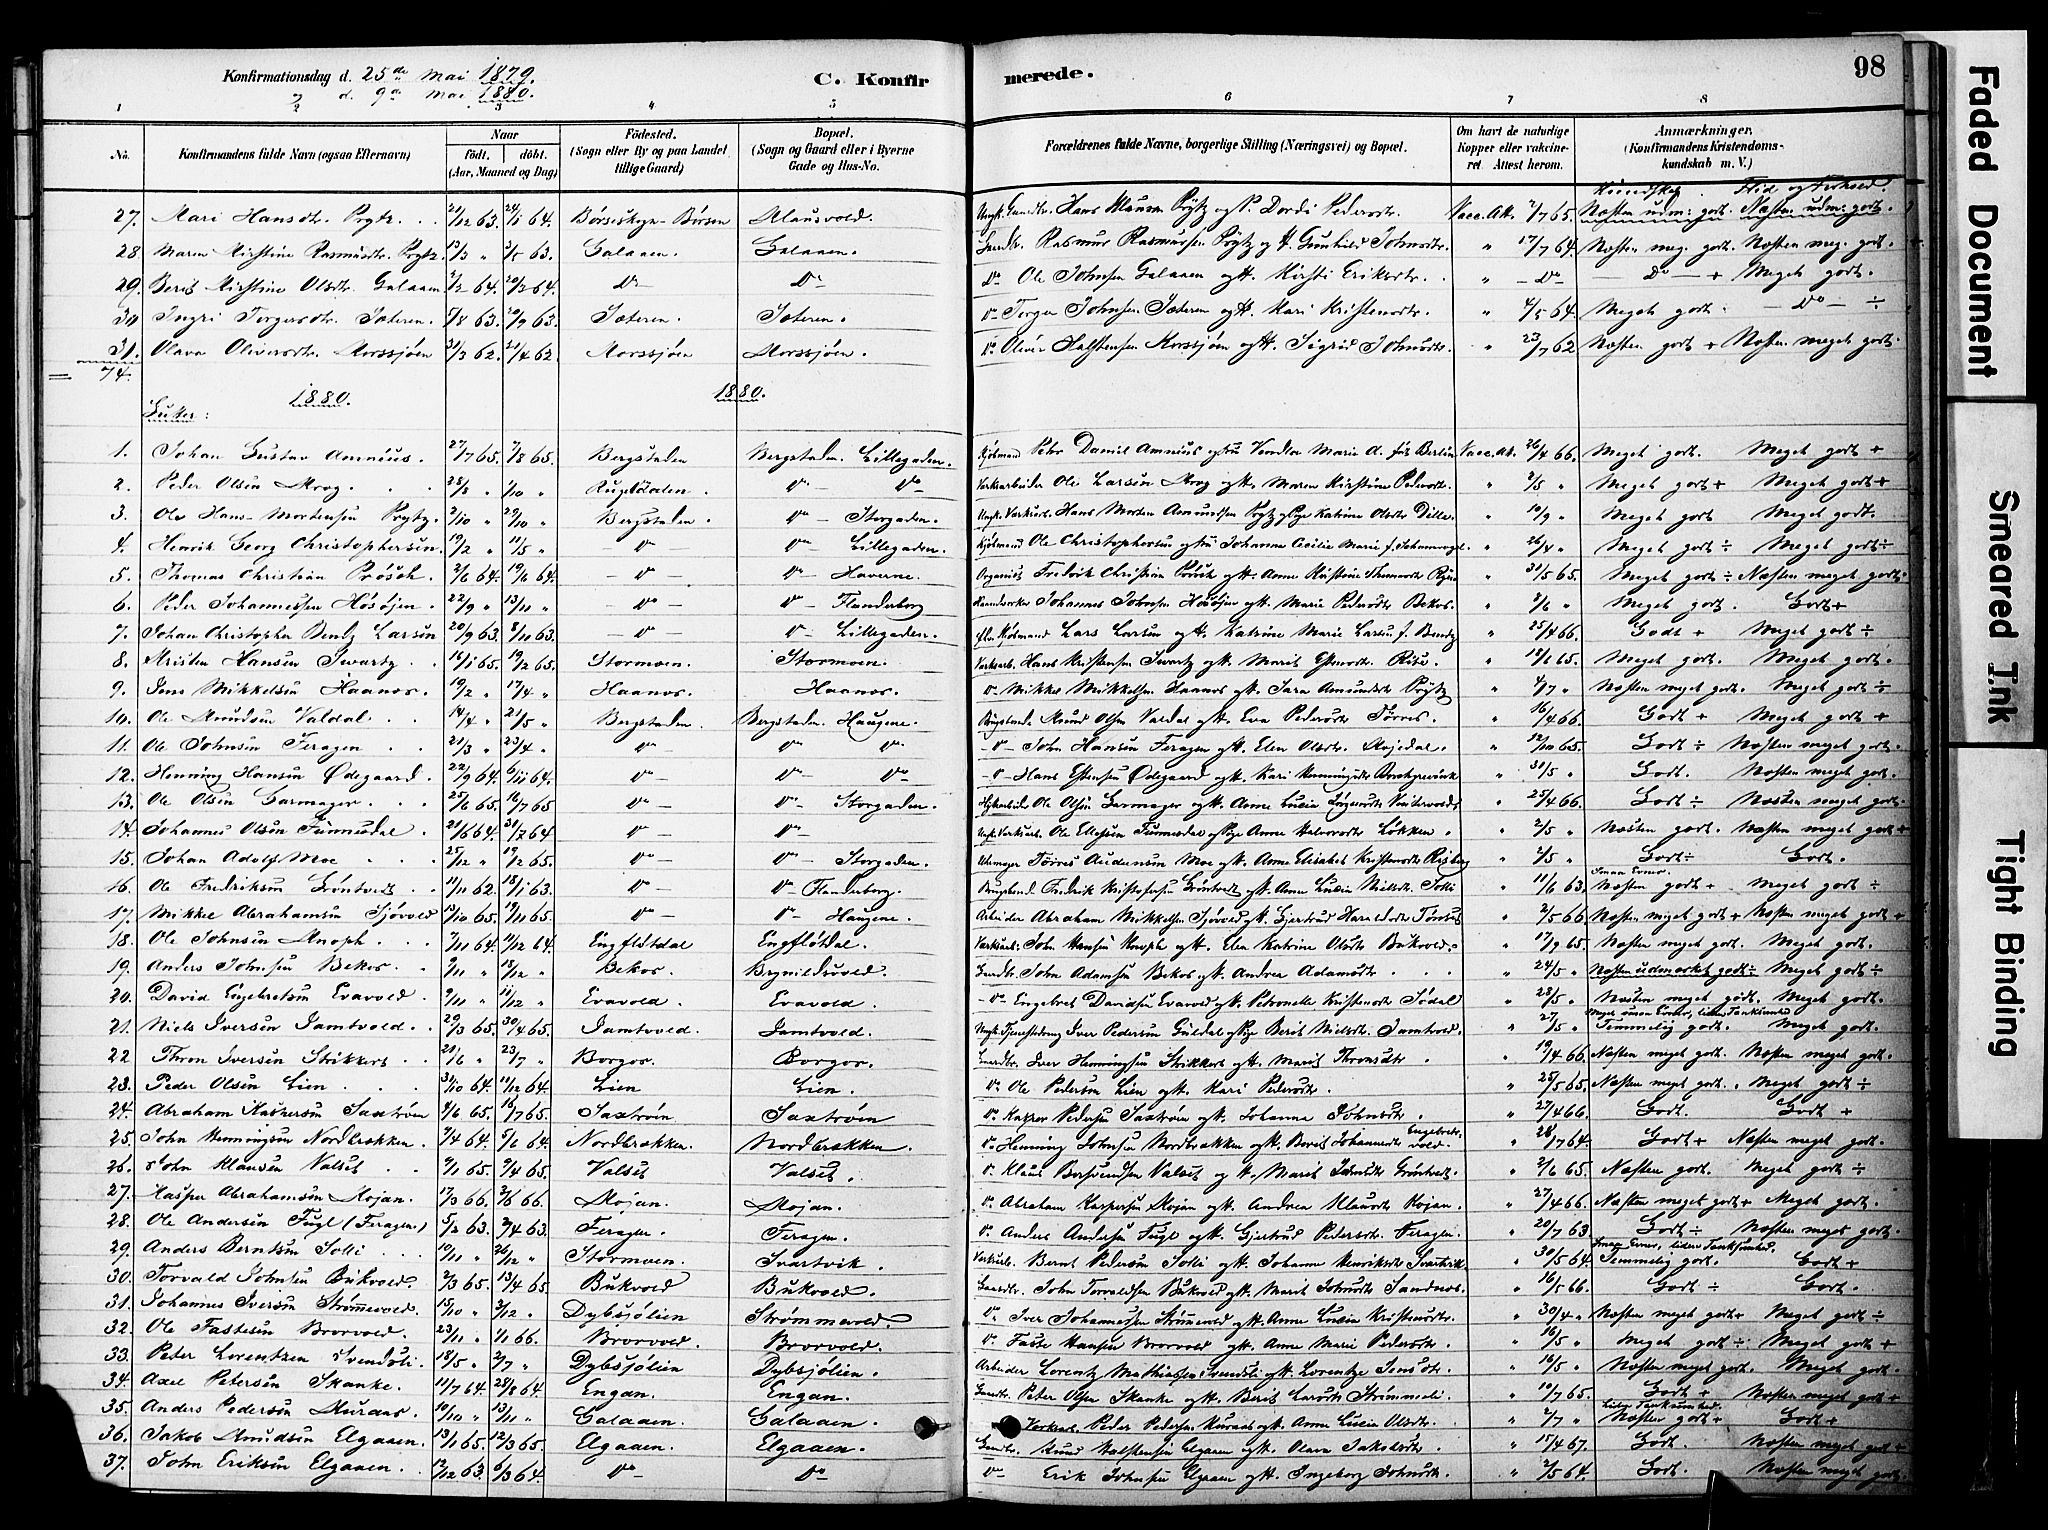 Konfirmationsdag d. 25de Mai 1879.
og d. 9de Mai 1880.
C. Konfir merede. 98
1 2 3 4 5 6 7 8
No. Konfirmandens fulde Navn (ogsaa Efternavn) Naar födt. döbt. (Aar, Maaned og Dag) Födested. (Sogn eller By og paa Landet tillige Gaard) Bopæl. (Sogn og Gaard eller i Byerne Gade og Hus-No. Forældrenes fulde Navne, borgerlige Stilling (Næringsvei) og Bopæl. Om havt de naturlige Kopper eller vakcineret. Attest herom. Anmærkninger. (Konfirmandens Kristendomskundskab m. V.)
Kundskab. Flid og Forhold.
27. Mari Hansdtr. Prytz 24/1 64. Klausvold. Hans Klausen Prytz Dordi Pedersdtr. Vacc. Att. 2/7 65. Næsten udm: godt. Næsten udm: godt.
28. Maren Kirstine Rasmusdtr. Prytz 13/3 " 3/5 63. Galaaen. Galaaen. Gaardbr. Rasmus Rasmussen Prytz og H. Gunhild Johnsdtr. " 17/7 64. Næsten meg. godt. Næsten meg. godt.
29. Berit Kirstine Olsdtr. Galaaen 2/2 64. 20/2 64. Do Do Do Ole Johnsen Galaaen og H. Kirsti Eriksdtr. " Do Do + Meget godt.
30 Ingri Torgersdtr. Sæteren. 5/8 63. 20/9 63. Sæteren. Sæteren. Do Torger Johnsen Sæteren og H. Mari Kristensdtr. " 4/5 64. Meget godt. Do ÷
31. Olava Oliversdtr. Korssjøen 31/3 62. 21/4 62. Korssjøen Korssjøen. Do Oliver Halstensen Korssjøen og H. Sigrid Johnsdtr. " 23/7 62 Næsten godt + Næsten meget godt.
74.
1880. 1880.
Gutter:
1. Johan Gustav Amnéus. 27/7 65. 7/8 65. Bergstaden Bergstaden. Lillegaden. Kjøbmand Peter Daniel Amnéus Marie Vacc. Att. 26/4 66. Meget godt. Meget godt +
2. Peder Olsen Krog 28/8 " 1/10 " Rugldalen. Do Do Værksarbeider Ole Larsen Krog og H. Maren Kirstine Pedersdtr. " 2/5 " Meget godt + Meget godt +
3. Ole Hans-Mortensen Prytz. 2/10 " 29/10 " Bergstaden. Do Storgaden. Hans Morten Amundsen Prytz Katrine Olsdtr Dille. " 10/9 " Meget godt. Meget godt.
4. Henrik Georg Christophersen. 19/2 " 11/5 " Do Do Lillegaden. Kjøbmand Ole Christophersen Johanna Cecilie Marie " 26/4 " Meget godt ÷ Meget godt ÷
5. Thomas Christian Prösch. 2/6 64. 19/6 64. Do Do Haverne. Organist Fredrik Christian Prösch og H. Anne Kirstine " 31/5 65. Meget godt ÷ Næsten meget godt.
6. Peder Johannessen Høsøjen. 22/9 " 13/11 " Do Do Flanderborg Johannes Johnsen Høsøjen og H. Marie Pedersdtr Bekos. " 2/6 " Meget godt. Godt +
7. Johan Christopher Bentz Larsen 20/9 63. 8/11 63. Do Do Lillegaden. Kjøbmand Lars Larsen og H. Katrine Marie Larsen f. Bentz " 25/4 66. Godt + Meget godt ÷
8. Kristen Hansen Svartz 16/1 65. 19/2 65. Stormoen. Stormoen. Værksarb. Hans Kristensen Svartz og H. Marit Estensdtr. Rise. " 18/6 65. Meget godt. Meget godt.
9. Jens Mikkelsen Haanes. 19/2 " 17/4 " Haanes. Haanes. Do Mikkel Mikkelsen Haanes og H. Sara Amundsdtr Prytz " 4/7 " Næsten meget godt. Meget godt ÷
10. Ole Knudsen Valdal 14/4 " 21/5 " Bergstaden. Bergstaden. Haugene. Knud Olsen Valdal og H. Eva Pedersdtr Tørres. " 16/4 66. Godt + Meget godt +
11. Ole Johnsen Feragen 21/3 " 23/4 " Do Do Do Do John Hansen Feragen og H. Elen Olsdtr. " 12/10 65. Godt ÷ Næsten meget godt.
12. Henning Hansen Ødegaard. 22/9 64. 6/11 64. Do Do Do Do Hans Estensen Ødegaard og H. Kari Henningsdtr " 31/5 " Godt. Næsten meget godt.
13. Ole Olsen Garmager. 25/6 65. 16/7 65 Do Do Storgaden. Ole Olsen Garmager og H. Anne Lucie " 25/4 66. Godt ÷ Næsten meget godt.
14. Johannes Olsen Finnesdal. 21/6 64. 31/7 64 Do Do Ole Ellefsen Finnesdal Anne Halvorsdtr Løkken " 2/5 " Næsten godt. Næsten meget godt +
15. Johan Adolf Moe 25/12 " 19/2 65. Do Do Storgaden. Uhrmager Tørres Audensen Moe og H. Anne Elisabet Kristensdtr Risberg " 2/5 " Godt ÷ Godt.
16. Ole Fredriksen Grøntvedt 11/11 62. 18/1 63. Do Do Flanderborg. Fredrik Kristofersen Grøntvedt og H. Anne Lucie Nielsdtr. Solli " 11/6 63. Smaa Evner. Næsten godt + Meget godt ÷
17. Mikkel Abrahamsen Sjøvold 15/10 65. 19/11 65. Do Do Haugene. Arbeider Abraham Mikkelsen Sjøvold og H. Gjertrud Haraldsdtr " 2/5 66. Næsten meget godt + Næsten meget godt +
18. Ole Johnsen Knoph. 7/11 64. 11/12 64. Engfløtdal Engfløtdal. Værksarb. John Hansen Knoph og H. Elen Katrine Olsdtr Bukvold. " 17/9 65. Næsten meget godt. Meget godt.
19. Anders Johnsen Bekos. 9/11 " 18/12 " Bekos. Brynildsvold. Gaardbr. John Adamsen Bekos og H. Andrea Adamsdtr " 24/5 " Næsten udmærket godt ÷ Meget godt ÷
20. David Engebretsen Evavold. 9/11 " 11/12 " Evavold. Evavold. Do Engebret Davidsen Evavold og H. Petronelle Kristensdtr Sødal " 28/5 " Næsten meget godt. Meget godt.
21. Niels Iversen Jamtvold. 29/3 65. 30/4 65. Jamtvold. Jamtvold. Iver Pedersen Guldal Berit Nielsdtr. Jamtvold. " 27/5 " Temmelig godt. Meget godt.
22 Thron Iversen Strikkert 21/6 " 23/7 " Borgos. Borgos. Gaardbr. Iver Henningsen Strikkert og H. Marit Thronsdtr " 19/4 66. Næsten meget godt. Næsten meget godt.
23. Peder Olsen Lien 31/10 64. 11/12 64. Lien Lien. Do Ole Pedersen Lien og H. Kari Pedersdtr. " 25/5 65. Næsten meget godt. Meget godt ÷
24. Abraham Kaspersen Saxtrøen 4/6 65. 16/7 65. Saxtrøen Saxtrøen Do Kasper Pedersen Saxtrøen og H. Johanna Johnsdtr. " 27/4 66. Godt. Godt +
25. John Henningsen Nordbrækken. 7/4 64. 5/6 64. Nordbrækken. Nordbrækken. Do Henning Johnsen Nordbrækken og H. Berit Johannesdtr Engebretsvold. " 28/7 64. Godt + Næsten meget godt.
26. John Klausen Valset 9/1 65. 9/4 65. Valset Valset. Do Klaus Valset og H. Marit Grøntvedt. " 2/6 65. Næsten godt. Meget godt ÷
27. Kasper Abrahamsen Kojan. 17/3 66. 3/6 66. Kojan. Kojan. Do Abraham Kaspersen Kojan og H. Andrea Klausdtr Kojan. " 27/4 66. Næsten meget godt + Meget godt.
28. Ole Andersen Fugl (Feragen) 5/2 63. 3/4 63. Feragen. Feragen. Do Anders Andersen Fugl og H. Gjertrud Pedersdtr. Feragen. " 20/7 63. Godt ÷ Næsten meget godt.
29. Anders Berntsen Solli 10/11 " 26/12 " Stormoen. Svartvik. Værksarb. Bernt Pedersen Solli og H. Johanne Henriksdtr Svartvik " 30/5 64. Smaa Evner, liden Tænksomhed. Temmelig godt. Godt +
30. Torvald Johnsen Bukvold. 2/3 65. 13/4 65. Bukvold Bukvold. Gaardbr. John Torvaldsen Bukvold og H. Marit Johnsdtr Sandnes. " 16/5 66. Godt ÷ Godt.
31. Johannes Iversen Strømmevold. 15/10 " 3/12 " Dybsjølien Strømmevold. Do Iver Johannessen Strømmevold og H. Anne Lucie Kristensdtr. " 30/4 " Næsten meget godt + Meget godt ÷
32. Ole Fastesen Brorvold. 23/11 " 1/1 66. Brorvold Brorvold. Do Faste Hansen Brorvold og H. Anne Marie Pedersdtr " 16/5 " Meget godt ÷ Meget godt +
33. Peter Lorentzen Svendsli. 18/5 " 2/7 " Dybsjølien Dybsjølien. Arbeider Lorentz Mathiassen Svendsli og H. Lorentze Jensdtr. " 16/5 " Næsten meget godt. Meget godt.
34. Axel Petersen Skanke. 11/7 64. 28/8 64. Engan. Engan. Gaardbr. Peter Olsen Skanke og H. Berit Larsdtr Strømmeli. " 10/7 65. Godt + Næsten meget godt +
35. Anders Pedersen Kuraas. 10/10 " 13/11 " Galaaen. Galaaen. Værksarb. Peder Pedersen Kuraas og H. Anne Lucie Olsdtr. " 2/7 " Liden Tænksomhed. Næsten godt + Godt +
36. Jakob Knudsen Elgaaen. 13/1 65. 12/3 65. Elgaaen. Elgaaen. Gaardbr. Knud Halstensen Elgaaen og H. Olava Jakobsdtr. " 15/4 67. Godt. Næsten meget godt +
37. John Eriksen Elgaaen. 12/12 63. 6/3 64. Do Do Do Erik Johnsen Elgaaen og H. Ingeborg Johnsdtr. " 2/5 64. Godt. Næsten meget godt.
Faded Document
Smeared Ink
Tight Binding